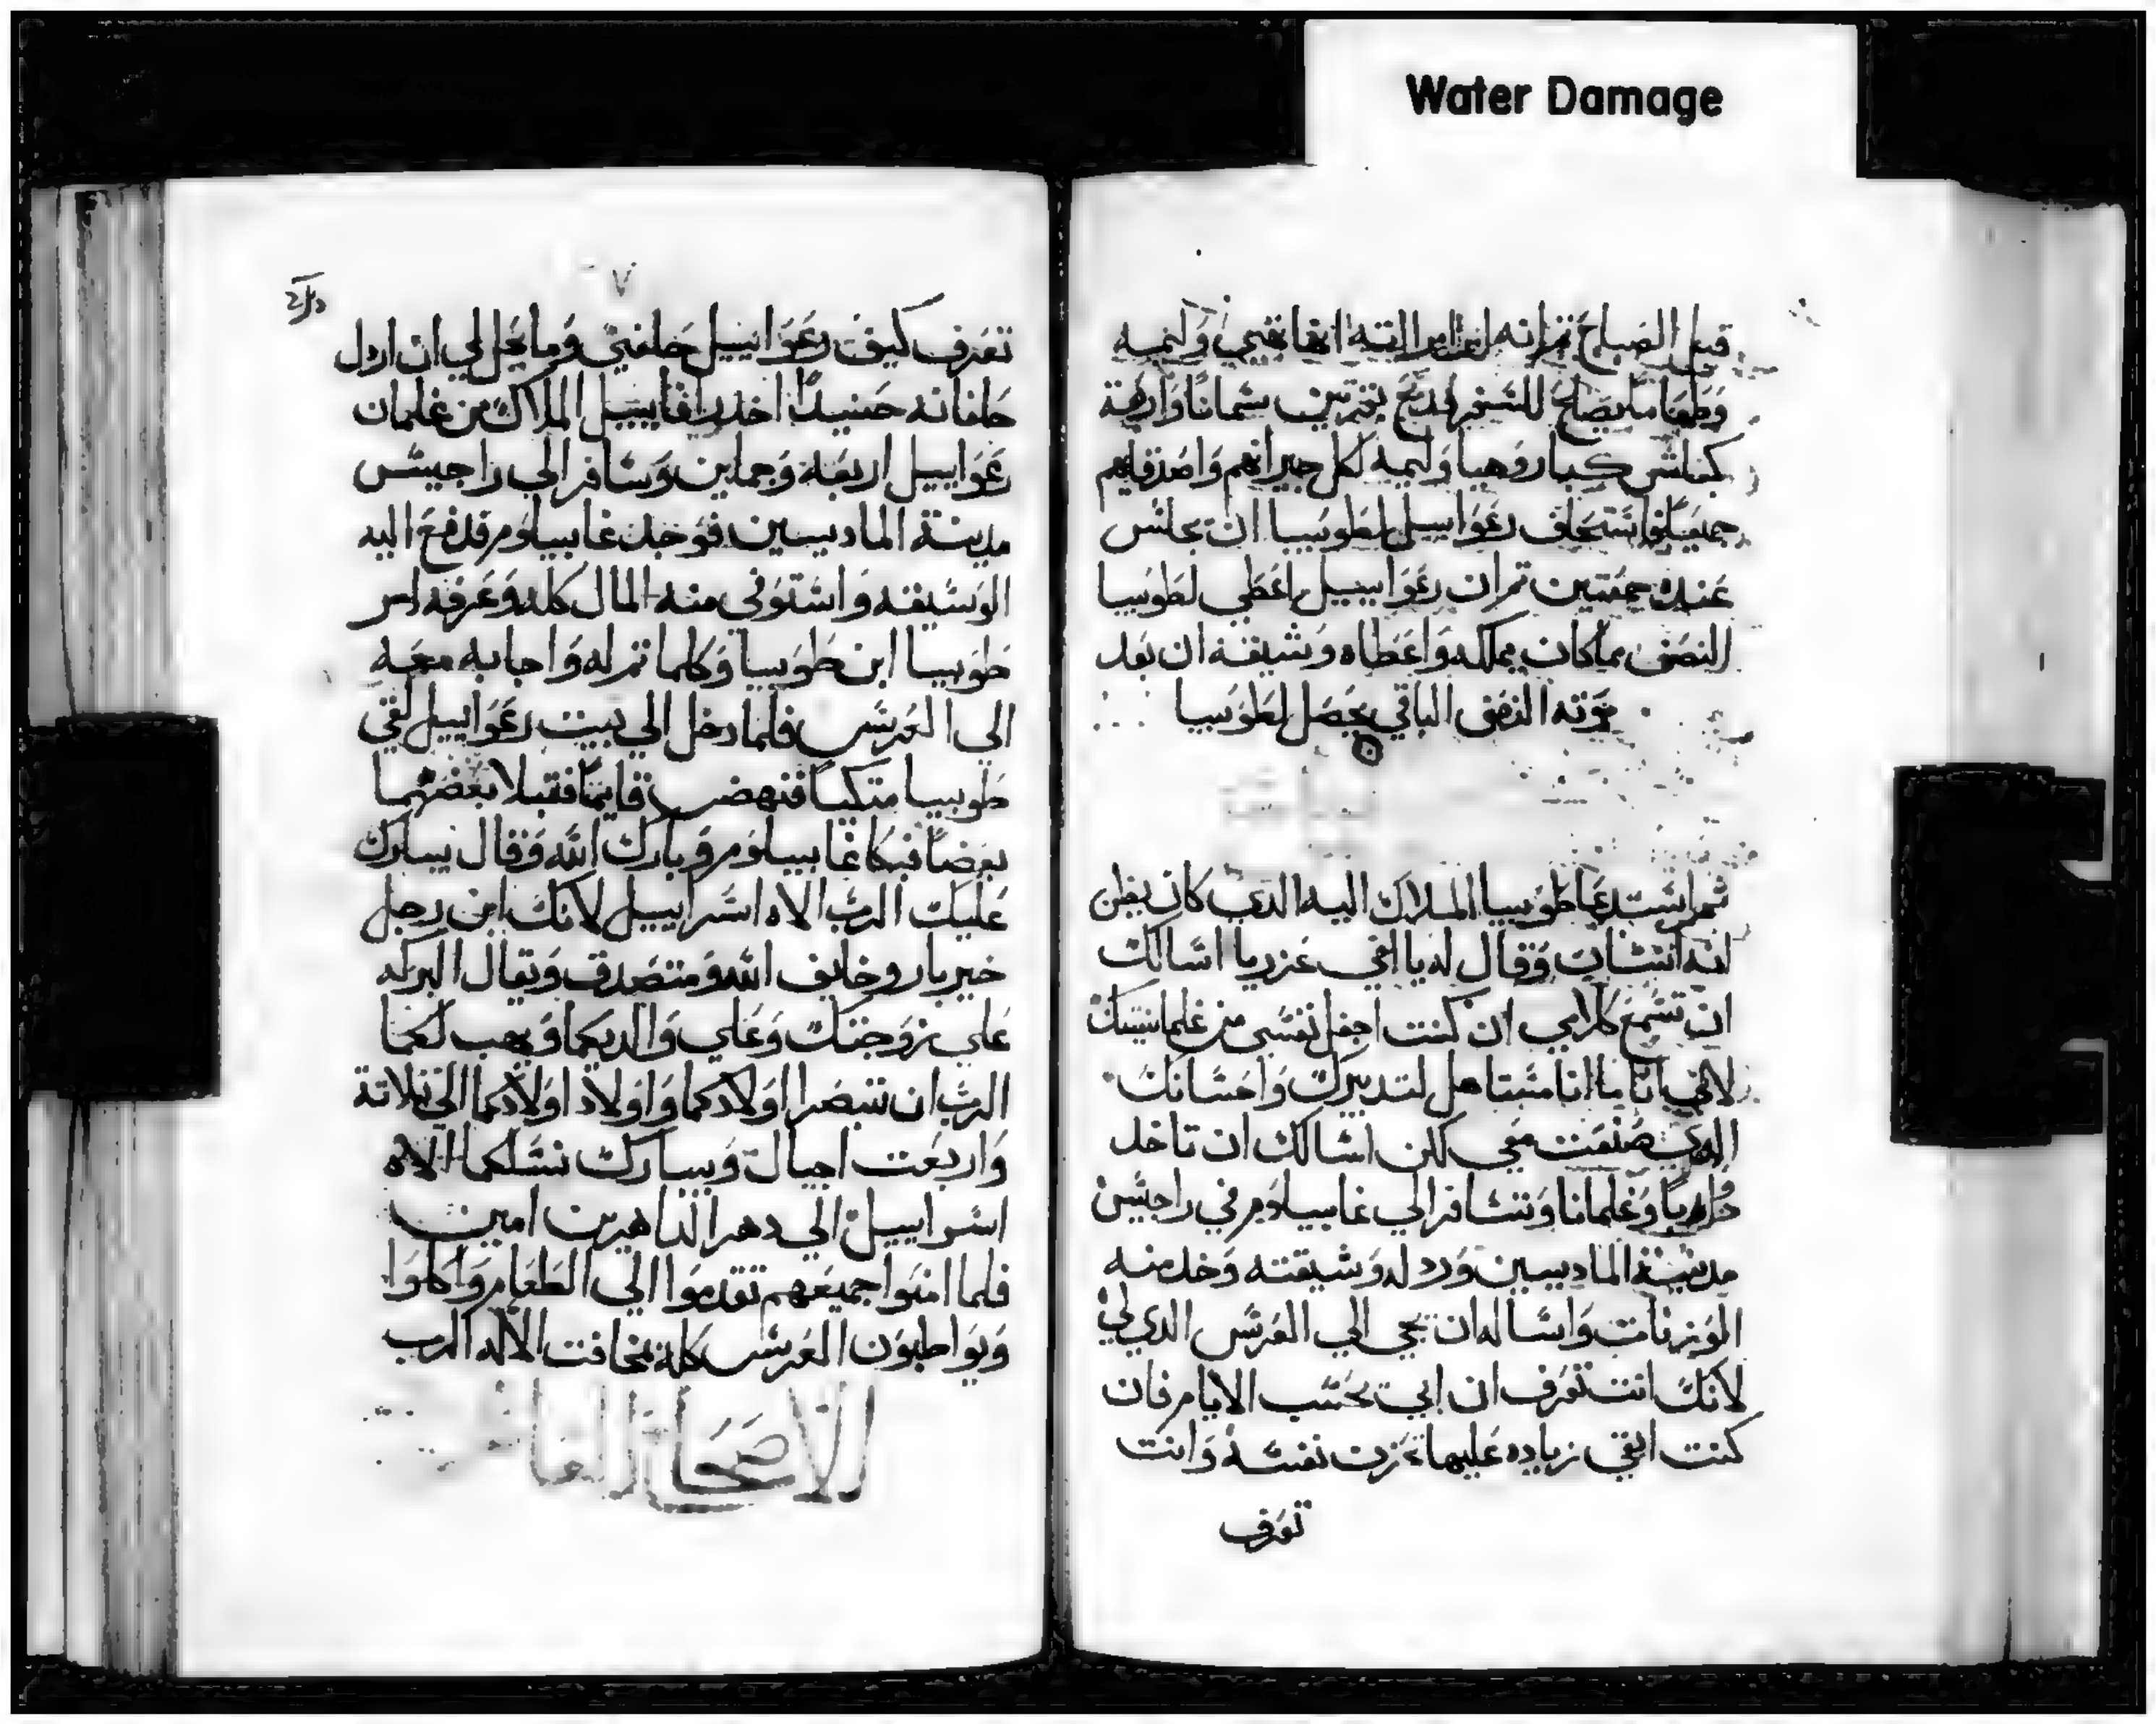 Water Damage
قبل الصباح ثم انه امر امراته انها تهيي وليمه
وطعاما يصلح للسفر فدبح بقرتين سمانا واربعة
كباش كبار وهيا وليمه لكل جيرانهم واصدقايهم
جميعا واستحلف رعواييل لطوبيا ان يجلس
عنده جمعتين ثم ان رعواييل اعطي لطوبيا
النصف مما كان يملكه واعطاه وشيقه ان بعد
موته النصف الباقي يحصل لطوبيا
ثم استدعا طوبيا الملاك اليه الدي كان يظن
انه انسان وقال له يا اخي عزريا اسالك
ان تسمع كلامي ان كنت اجعل نفسى من غلمانك
لاني انا ما انا مستاهل لتدبيرك واحسانك
الدي صنعت معي لكن اسالك ان تاخد
دوابا وغلمانا وتسافر الي غابيلوم في راجيس
مدينة الماديين ورد له وشيقته وخد منه
الوزنات واساله ان يجي الي العرس الدي لي
لانك انت تعرف ان ابي يحسب الايام فان
كنت ابقي زياده عليها تحزن نفسه وانت
تعرف
٧
تعرف كيف رعواييل حلفني وما يحل لي ان ارذل
حلفانه حينيدا اخد رافاييل الملاك من غلمان
رعواييل اربعه وجملين وسافر الي راجيس
مدينة الماديين فوجد غابيلوم فدفع اليه
الوشيقه واستوفى منه المال كله وعرفه امر
طوبيا ابن طوبيا وكلما تم له واجابه معه
الي العرس فلما دخل الي بيت رعواييل لقي
طوبيا متكيا فنهض قايما فقبلا بعضهما
بعضا فبكا غابيلوم وبارك الله وقال يبارك
عليك الرب الاه اسراييل لانك ابن رجل
خير بار وخايف الله ومتصدق وتقال البركه
علي زوجتك وعلي والديكما ويهب لكما
الرب ان تنصرا اولادكما واولاد اولادكما الي ثلاتة
واربعت اجيال ويبارك نسلكما الاه
اسراييل الي دهر الداهرين امين
فلما امنوا جميعهم تقدموا الي الطعام واكلوا
ويواطبون العرس كله بمخافت الاله الرب